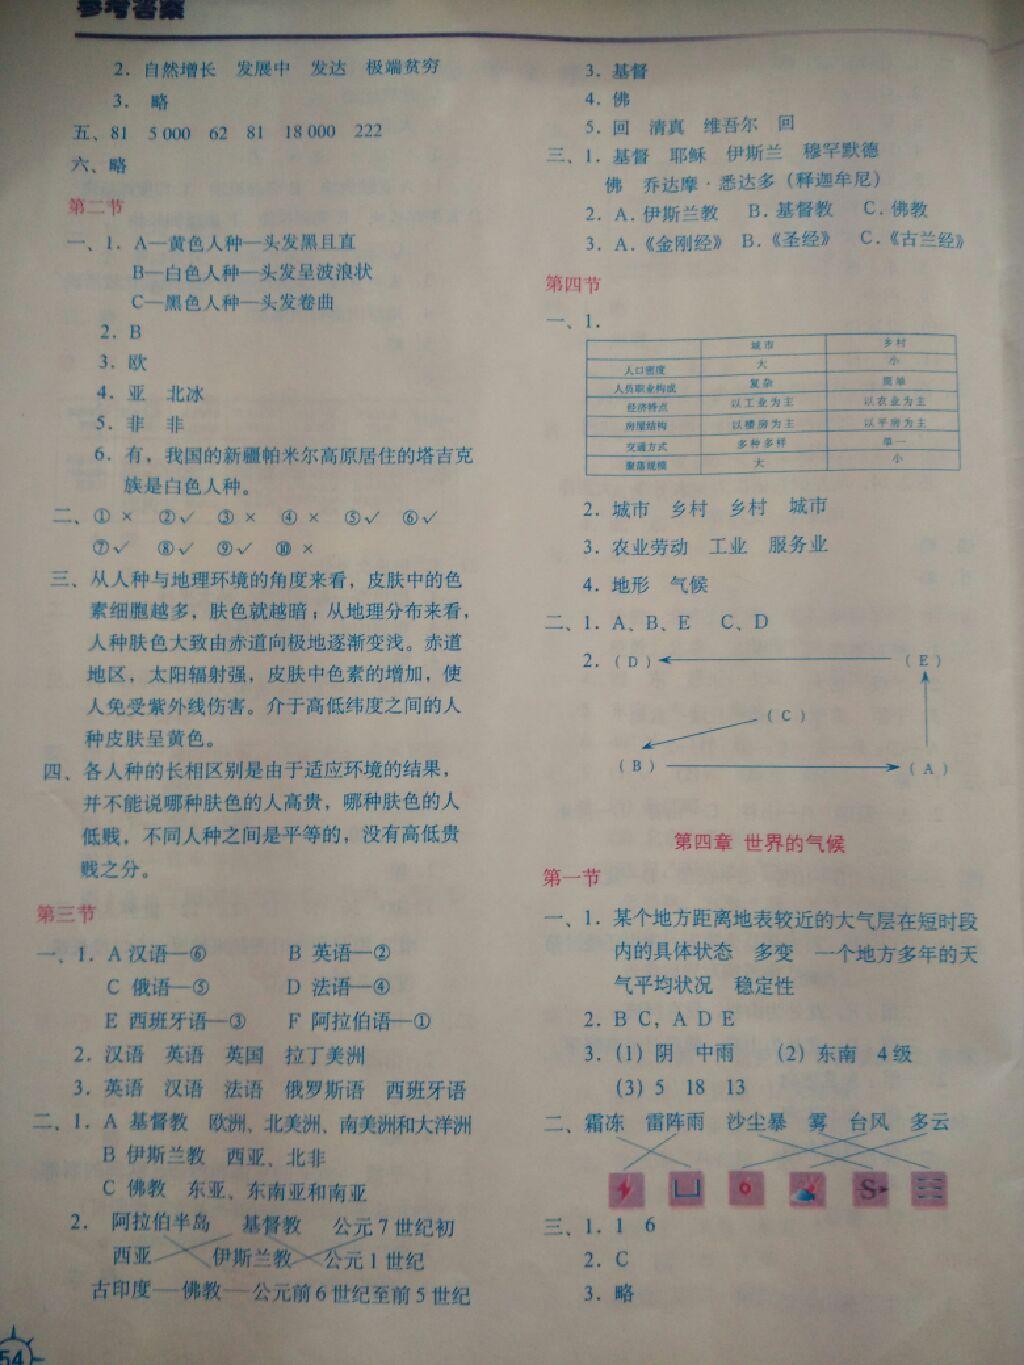 参考答案
2. 自然增长 发展中 发达 极端贫穷
3. 略
五、81 5 000 62 81 18 000 222
六、略
第二节
一、1. A—黄色人种—头发黑且直
B—白色人种—头发呈波浪状
C—黑色人种—头发卷曲
2. B
3. 欧
4. 亚 北冰
5. 非 非
6. 有，我国的新疆帕米尔高原居住的塔吉克
族是白色人种。
二、①× ②✓ ③× ④× ⑤✓ ⑥✓
⑦✓ ⑧✓ ⑨✓ ⑩×
三、从人种与地理环境的角度来看，皮肤中的色
素细胞越多，肤色就越暗；从地理分布来看，
人种肤色大致由赤道向极地逐渐变浅。赤道
地区，太阳辐射强，皮肤中色素的增加，使
人免受紫外线伤害。介于高低纬度之间的人
种皮肤呈黄色。
四、各人种的长相区别是由于适应环境的结果，
并不能说哪种肤色的人高贵，哪种肤色的人
低贱，不同人种之间是平等的，没有高低贵
贱之分。
第三节
一、1. A 汉语—⑥ B 英语—②
C 俄语—⑤ D 法语—④
E 西班牙语—③ F 阿拉伯语—①
2. 汉语 英语 英国 拉丁美洲
3. 英语 汉语 法语 俄罗斯语 西班牙语
二、1. A 基督教 欧洲、北美洲、南美洲和大洋洲
B 伊斯兰教 西亚、北非
C 佛教 东亚、东南亚和南亚
2. 阿拉伯半岛 基督教 公元7世纪初
西亚 伊斯兰教 公元1世纪
古印度—佛教—公元前6世纪至前5世纪
54
3. 基督
4. 佛
5. 回 清真 维吾尔 回
三、1. 基督 耶稣 伊斯兰 穆罕默德
佛 乔达摩·悉达多（释迦牟尼）
2. A. 伊斯兰教 B. 基督教 C. 佛教
3. A.《金刚经》 B.《圣经》 C.《古兰经》
第四节
一、1.
城市 乡村
人口密度 大 小
人员职业构成 复杂 简单
经济特点 以工业为主 以农业为主
房屋结构 以楼房为主 以平房为主
交通方式 多种多样 单一
聚落规模 大 小
2. 城市 乡村 乡村 城市
3. 农业劳动 工业 服务业
4. 地形 气候
二、1. A、B、E C、D
2. （D） （E）
（C）
（B） （A）
第四章 世界的气候
第一节
一、1. 某个地方距离地表较近的大气层在短时段
内的具体状态 多变 一个地方多年的天
气平均状况 稳定性
2. B C，A D E
3. (1) 阴 中雨 (2) 东南 4级
(3) 5 18 13
二、霜冻 雷阵雨 沙尘暴 雾 台风 多云
三、1. 1 6
2. C
3. 略